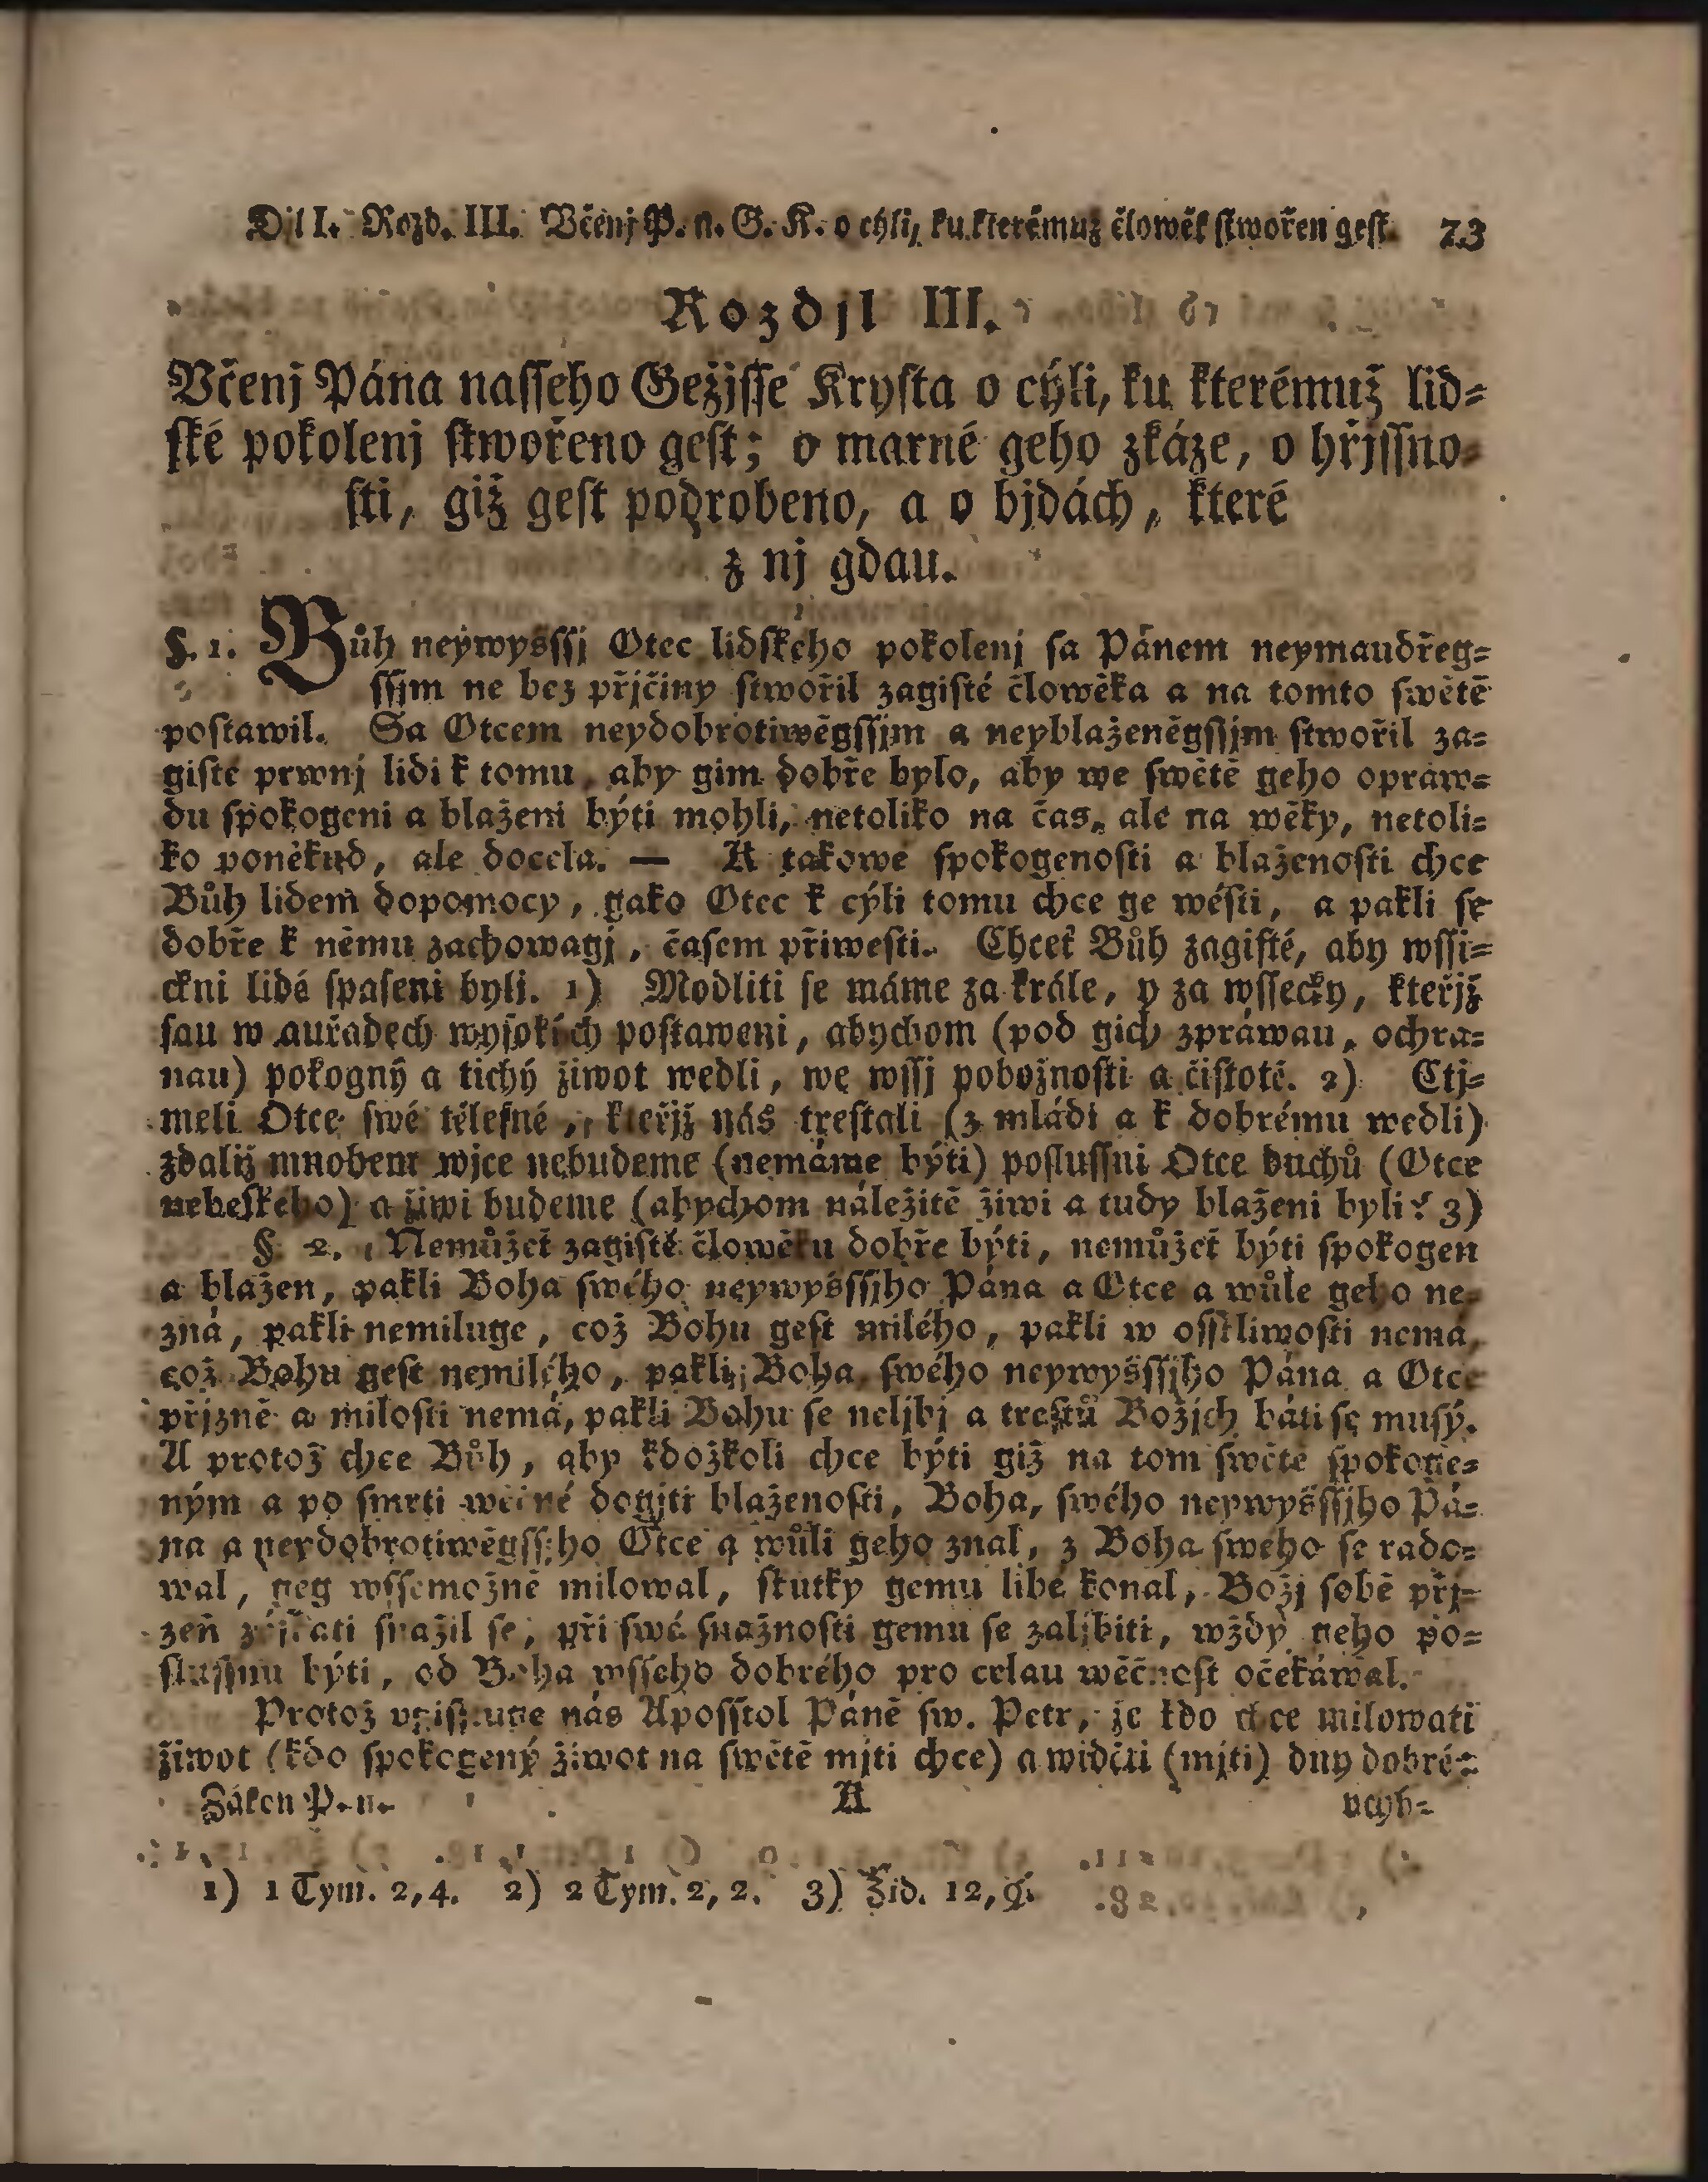 Djl I. Rozd. III. Včenj P. n. G. K. o cýli, ku kterémuž člowěk stwořen gest. 73
Rozdjl III.
Včenj Pána nasseho Gežjsse Krysta o cýli, ku kterémuž lid=
ské pokolenj stwořeno gest; o marné geho zkáze, o hřjssno=
sti, giž gest podrobeno, a o bjdách, které
z nj gdau.
§. 1. Bůh neywyšssj Otec lidského pokolenj sa Pánem neymaudřeg=
ssjm ne bez přjčiny stwořil zagisté člowěka a na tomto swětě
postawil. Sa Otcem neydobrotiwěgssjm a neyblaženěgssjm stwořil za=
gisté prwnj lidi k tomu, aby gim dobře bylo, aby we swětě geho opraw=
du spokogeni a blaženi býti mohli, netoliko na čas, ale na wěky, netoli=
ko poněkud, ale docela. — A takowé spokogenosti a blaženosti chce
Bůh lidem dopomocy, gako Otec k cýli tomu chce ge wésti, a pakli se
dobře k němu zachowagj, časem přiwesti. Chceť Bůh zagisté, aby wssi=
ckni lidé spaseni byli. 1) Modliti se máme za krále, y za wssecky, kteřjž
sau w auřadech wysokích postaweni, abychom (pod gich zpráwau, ochra=
nau) pokogný a tichý žiwot wedli, we wssj pobožnosti a čistotě. 2) Ctj=
meli Otce swé tělesné, kteřjž nás trestali (z mládi a k dobrému wedli)
zdaliž mnohem wjce nebudeme (nemáme býti) poslussni Otce duchů (Otce
nebeského) a žiwi budeme (abychom náležitě žiwi a tudy blaženi byli? 3)
§. 2. Nemůžeť zagisté člowěku dobře býti, nemůžeť býti spokogen
a blažen, pakli Boha swého neywyšssjho Pána a Otce a wůle geho ne=
zná, pakli nemiluge, což Bohu gest milého, pakli w osskliwosti nemá,
což Bohu gest nemilého, pakli Boha swého neywyšssjho Pána a Otce
přjzně a milosti nemá, pakli Bohu se neljbj a trestů Božjch báti se musý.
A protož chce Bůh, aby kdožkoli chce býti giž na tom swětě spokoge=
ným a po smrti wěčné dogjti blaženosti, Boha, swého neywyšssjho Pá=
na a neydobrotiwěgssjho Otce a wůli geho znal, z Boha swého se rado=
wal, geg wssemožně milowal, skutky gemu libé konal, Božj sobě přj=
zeň zýskati snažil se, při swé snažnosti gemu se zaljbiti, wždy geho po=
slussnu býti, od Boha wsseho dobrého pro celau wěčnost očekáwal.
Protož vgisťuge nás Aposstol Páně sw. Petr, že kdo chce milowati
žiwot (kdo spokogený žiwot na swětě mjti chce) a widěti (mjti) dny dobré:
Zákon P. n. K vcyh=
1) 1 Tym. 2, 4. 2) 2 Tym. 2, 2. 3) Žid. 12, 9.